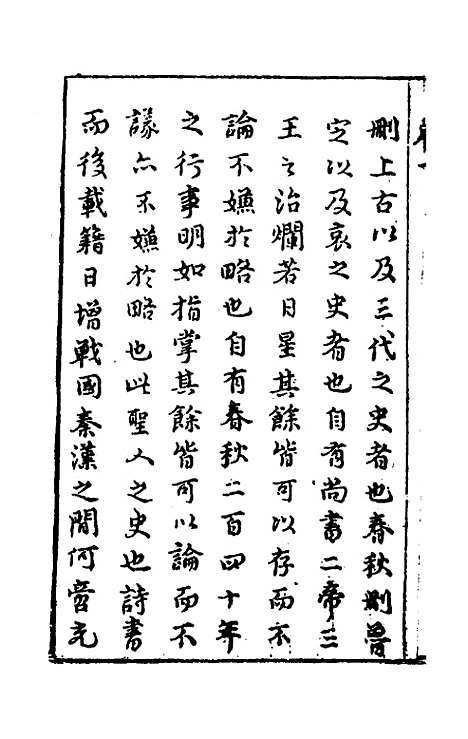 刪上古以及三代之史者也春秋刪魯
定以及哀之史者也自有尚書二帝三
王之治爛若日星其餘皆可以存而不
論不嫌於略也自有春秋二百四十年
之行事明如指掌其餘皆可以論而不
議亦不嫌於略也此聖人之史也詩書
而後載籍日增戰國秦漢之間何啻充